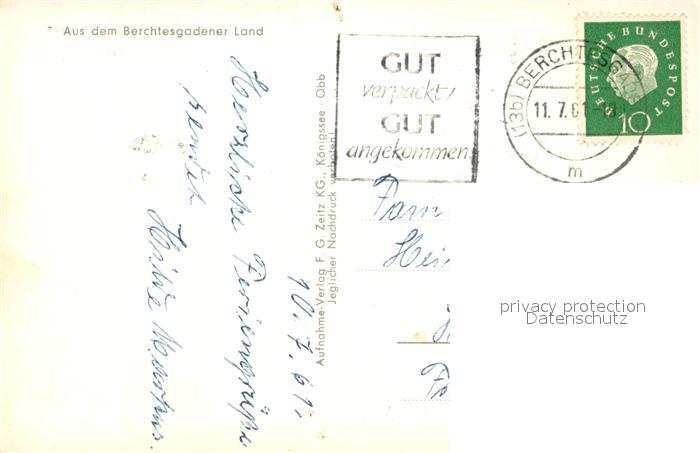 Aus dem Berchtesgadener Land
GUT
verpackt,
GUT
angekommen
(13b) BERCHTESGADEN
11.7.61
m
DEUTSCHE BUNDESPOST
10
10.7.61.
Herzliche Feriengrüße
sendet
Aufnahme-Verlag F. G. Zeitz KG., Königssee - Obb
Jeglicher Nachdruck verboten!
Fam
Hei
privacy protection
Datenschutz